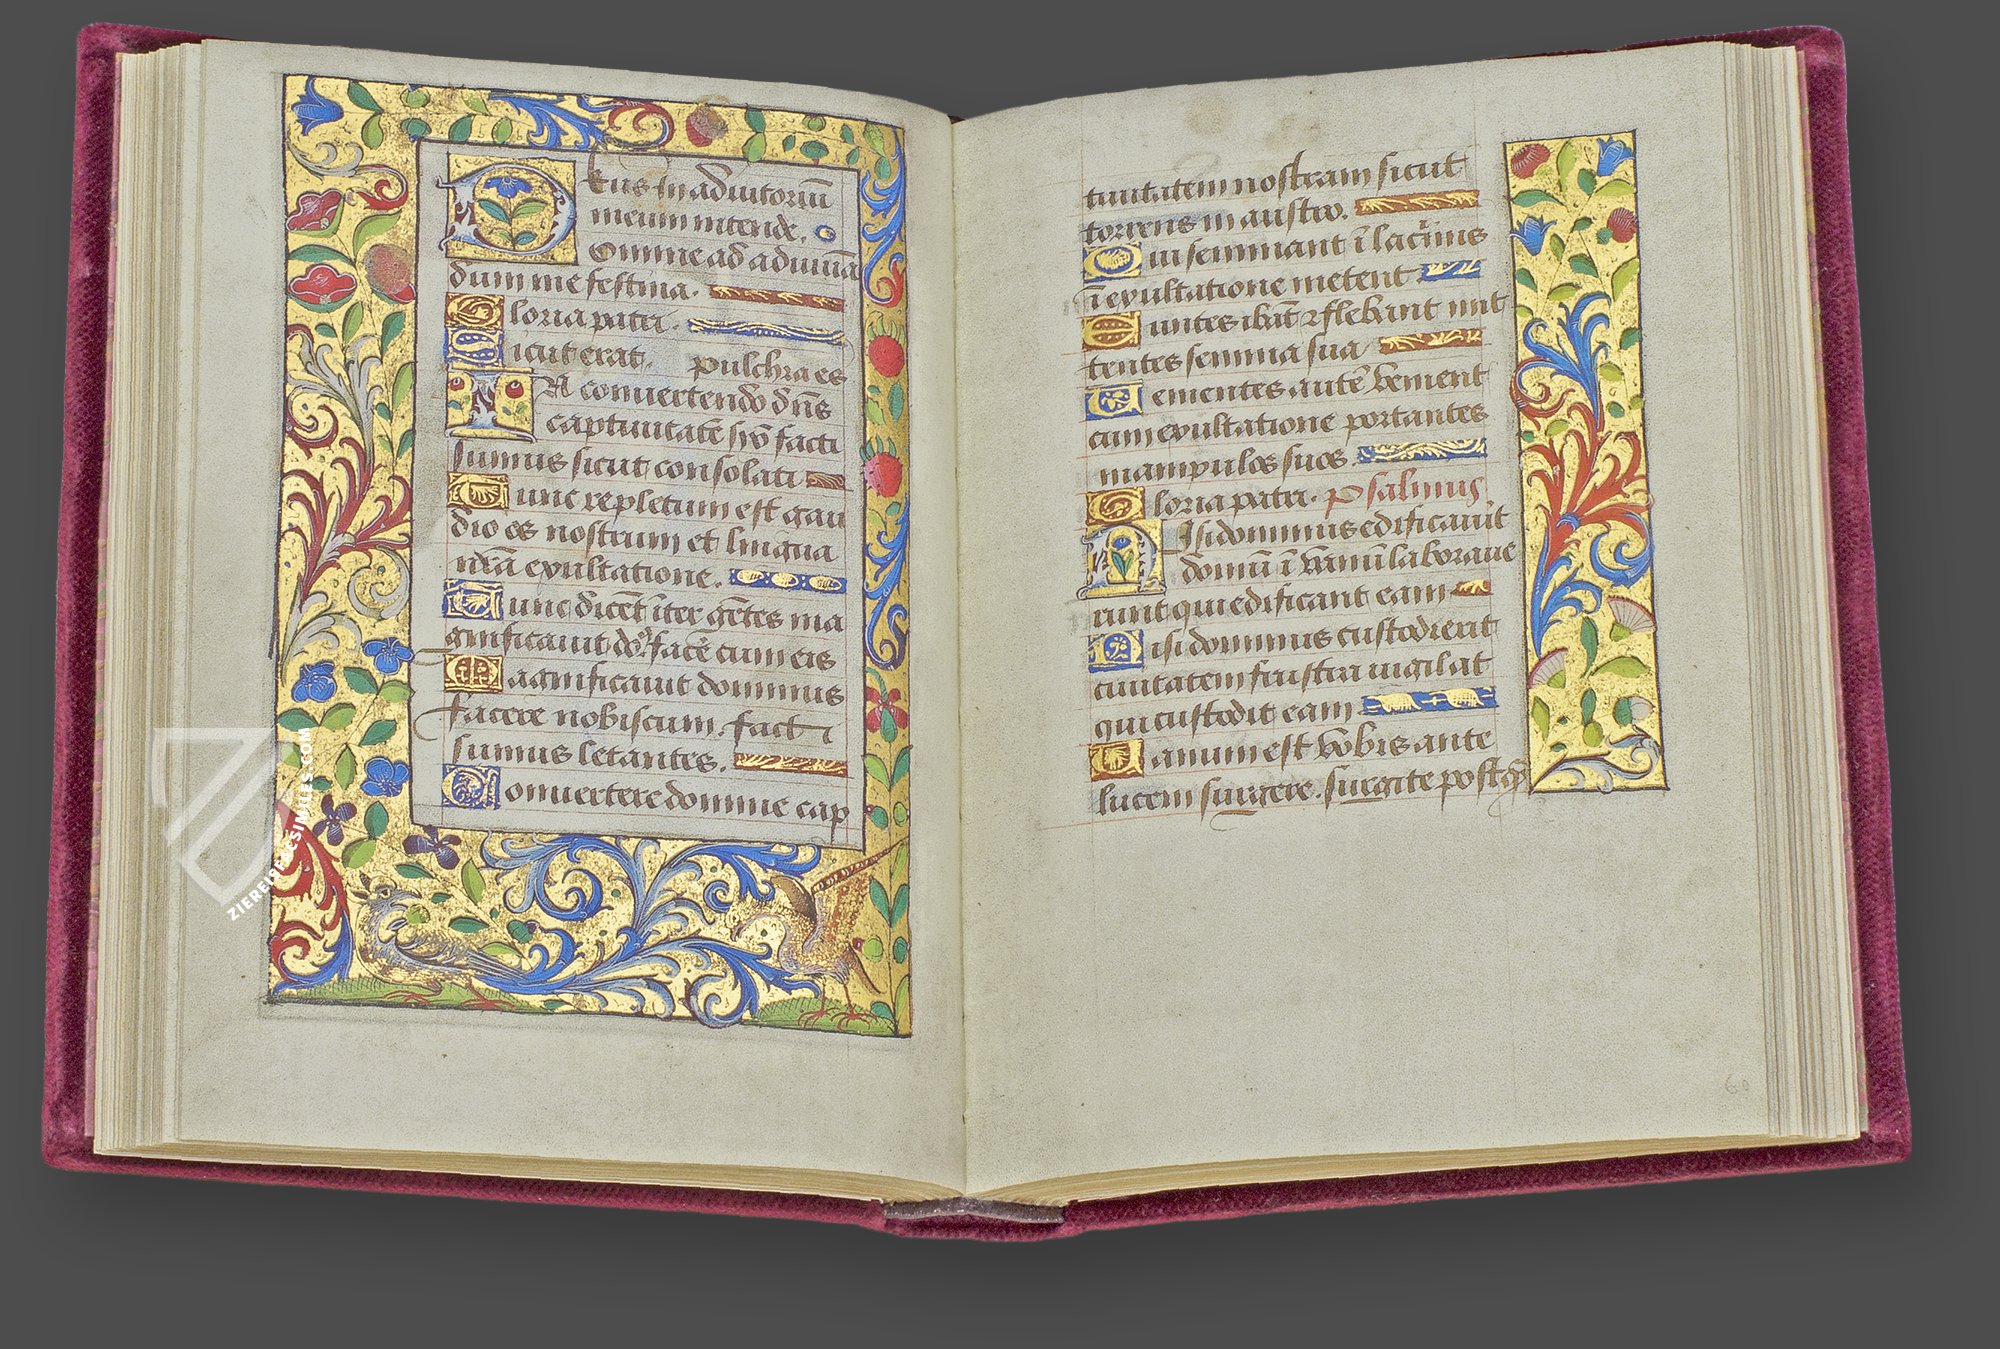 Deus in adiutoriū
meum intende. O
Domine ad adiuuā
dum me festina.
Gloria patri.
Sicut erat. Pulchra es
IN convertendo dn̄s
captiuitatē syō facti
sumus sicut consolati
Tunc repletum est gau
dio os nostrum et lingua
nr̄a exultatione.
Tunc dicent īter gētes ma
gnificauit do9 facē cum eis
Magnificauit dominus
facere nobiscum. facti
sumus letantes.
Conuertere domine cap
tiuitatem nostram sicut
torrens in austro.
Qui seminant ī lacrimis
ī exultatione metent
Euntes ibāt ⁊ flebant mit
tentes semina sua
Uenientes autē venient
cum exultatione portantes
manipulos suos.
Gloria patri. Psalmus
Nisi dominus edificauit
domū ī vanum laboraue
runt qui edificant eam
Nisi dominus custodierit
ciuitatem frustra uigilat
qui custodit eam
Uanum est vobis ante
lucem surgere. surgite postq̄
60
ZIEREIS FACSIMILES.COM